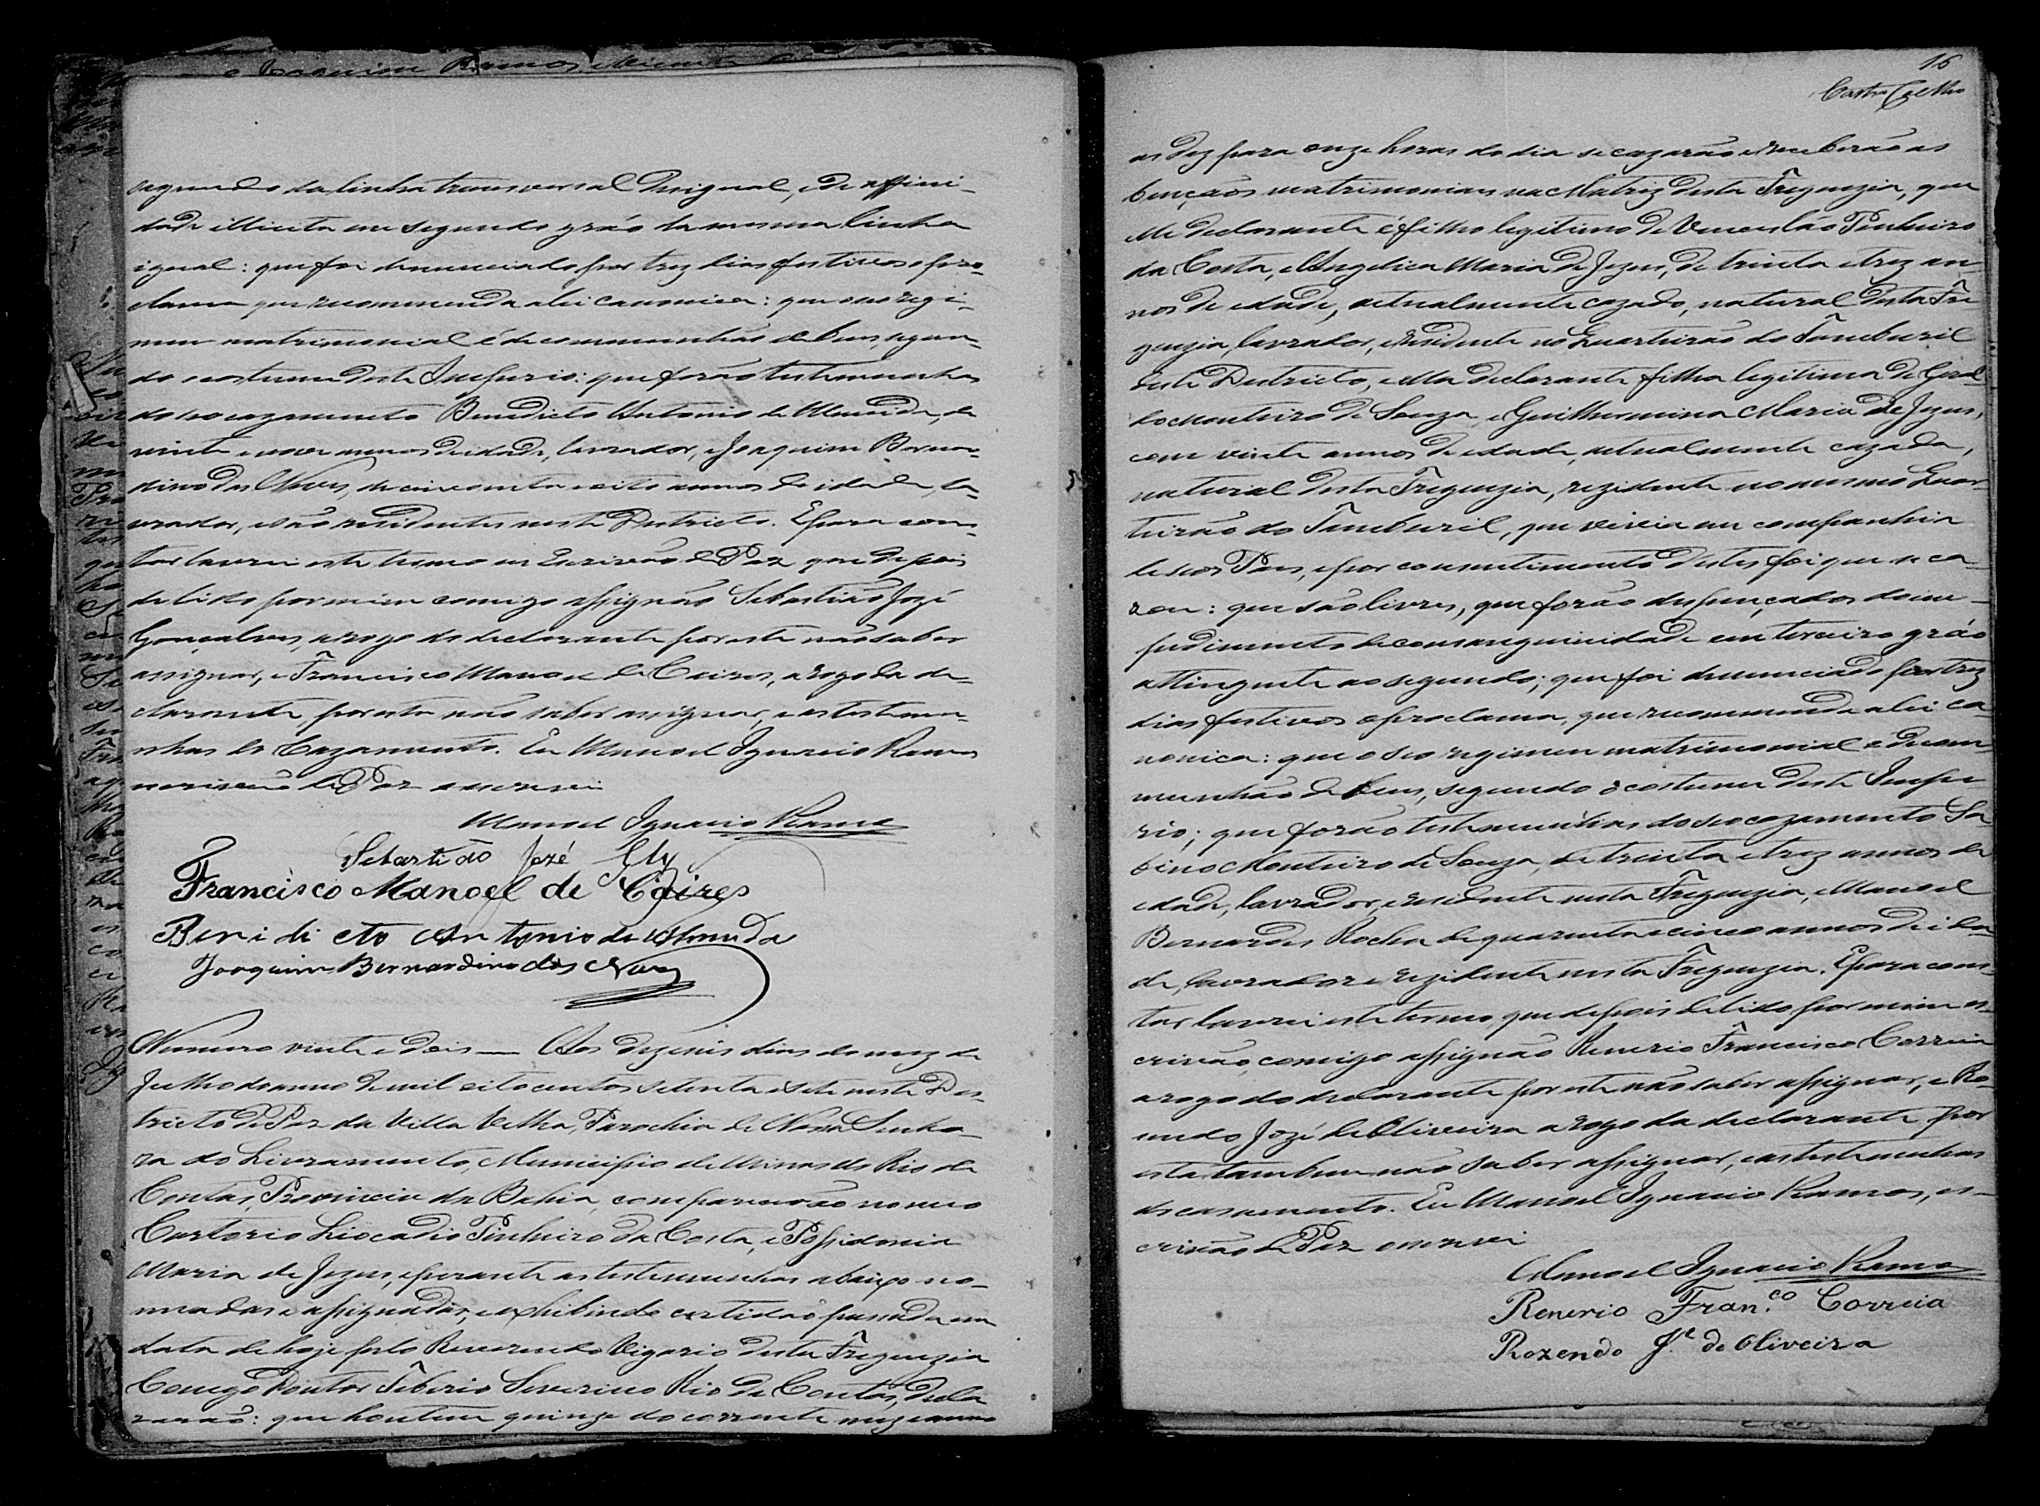 segundo da linha transversal desigual, e de affini-
dade illicita em segundo gráo da mesma linha
igual: que foi denunciado por trez dias festivos e pro-
clama que recommenda a lei canonica: que seo regi-
men matrimonial é de communhão de bens, segun-
do o costume deste Imperio: que forão testemunhas
do seo cazamento Benedicto Antonio de Almeida, de
vinte e nove annos de idade, lavrador, e Joaquim Bernar-
dino das Neves, de cincoenta e oito annos de idade, la-
vrador, e são residentes neste Districto. E para cons-
tar lavrei este termo eu Escrivão de Paz que depois
de lido por mim comigo assignão Sebastião Jozé
Gonçalves, a rogo do declarante por este não saber
assignar, e Francisco Manoel de Caires, a rogo da de-
clarante, por esta não saber assignar, e as testemu-
nhas do Cazamento. Eu Manoel Ignacio Ramos
escrivão de Paz o escrevi
Manoel Ignacio Ramos
Sebastião Jozé
Francisco Manoel de Caires
Beni di cto Antonio de Almeida
Joaquim Bernardino das Neves
Numero vinte e dois — Aos dezeseis dias do mez de
Julho do anno de mil oito centos setenta e sete neste Des-
tricto de Paz da Villa Velha, Parochia de Nossa Senho-
ra do Livramento, Municipio de Minas do Rio de
Contas, Provincia da Bahia, comparecerão no meo
Cartorio Liocadio Pinheiro da Costa, e Possidonia
Maria de Jezus, e perante as testemunhas abaixo no-
meadas e assignadas, e exhibindo certidão passada em
data de hoje pelo Reverendo Vigario desta Freguezia
Conego Doutor Tiberio Severino Rio de Contas, decla-
rarão: que hontem quinze do corrente mez e anno
16
Castro Coelho
as dez para onze horas do dia se cazarão e receberão as
bençãos matrimoniais na Matriz desta Freguezia, que
elle declarante é filho legitimo de Venceslão Pinheiro
da Costa, e Angelica Maria de Jezus, de trinta e trez an-
nos de edade, actualmente cazado, natural desta Fre-
guezia, lavrador, e residente no Quarteirão do Tamburil
deste Districto, e ella declarante filha legitima de Geral-
do Monteiro de Souza, e Guilhermina Maria de Jezus,
com vinte annos de edade, actualmente cazada,
natural desta Freguezia, rezidente no mesmo Quar-
teirão do Tamburil, que vivia em companhia
de seos Pais, e por consentimento destes foi que se ca-
zou: que são livres, que forão dispençados do im-
pedimento de consanguinidade em terceiro gráo
attingente ao segundo; que foi denunciado por trez
dias festivos e proclama, que recommenda a lei ca-
nonica: que o seo regimen matrimonial é de com-
munhão de bens, segundo o costume deste Impe-
rio; que forão testemunhas do seo cazamento Sa-
bino Monteiro de Souza, de trinta e trez annos de
edade, lavrador, e residente nesta Freguezia, e Manoel
Bernardes Rocha de quarenta e cinco annos de ida-
de, lavrador e rezidente nesta Freguezia. E para cons-
tar lavrei este termo que depois de lido por mim es-
crivão comigo assignão Renerio Francisco Correia
a rogo do declarante por este não saber assignar, e Ro-
zendo Jozé de Oliveira a rogo da declarante por
esta tambem não saber assignar, e as testemunhas
do casamento. Eu Manoel Ignacio Ramos, es-
crivão de Paz o escrevi
Manoel Ignacio Ramos
Renerio Fran.co Correia
Rozendo J.e de Oliveira